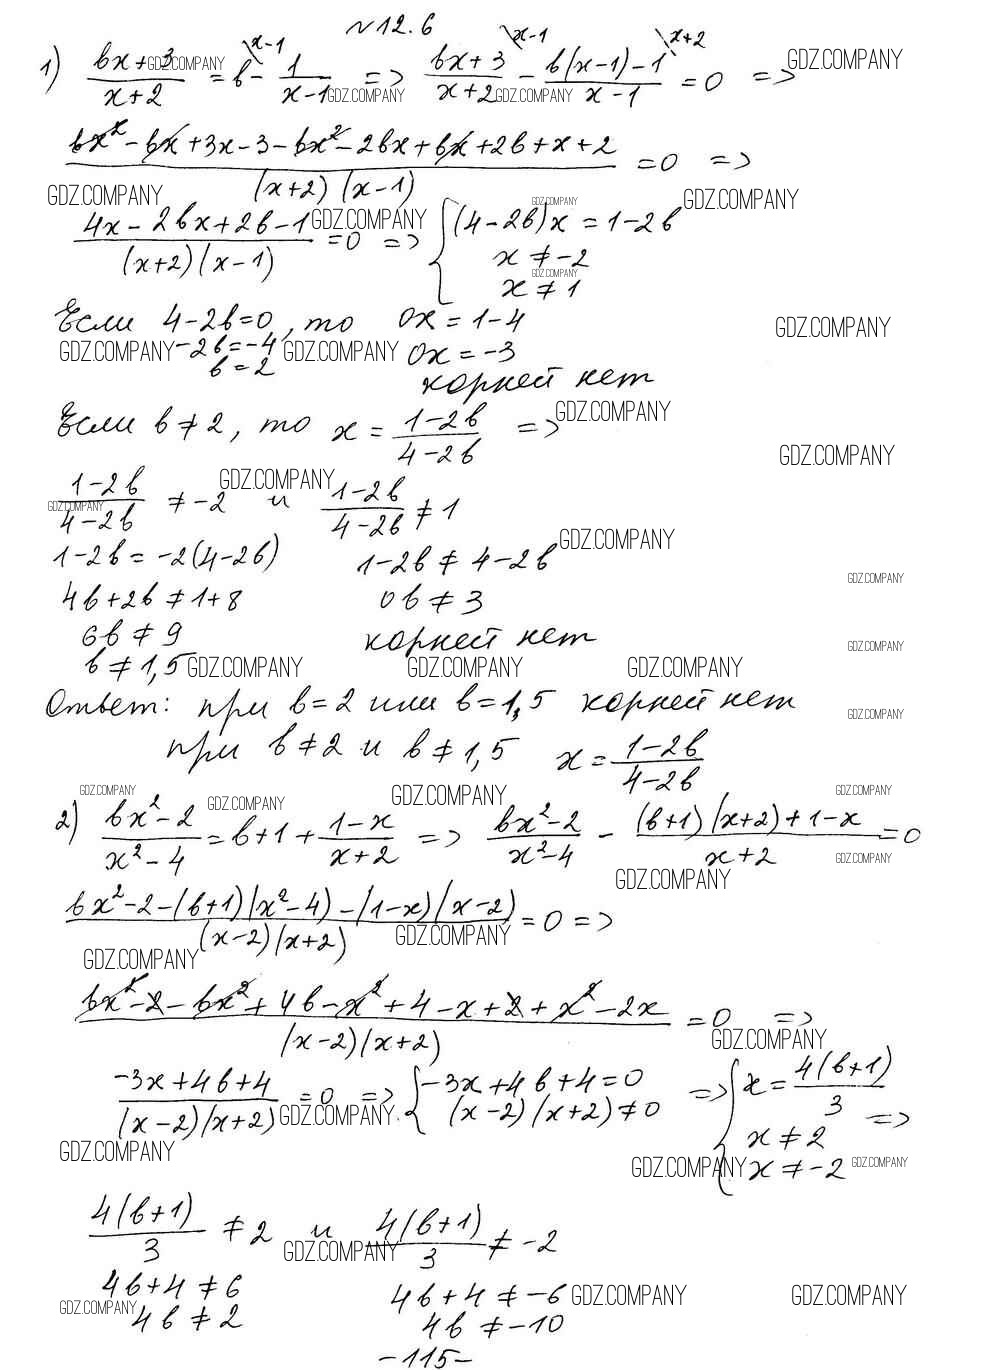 №12.6
1) (bx+3)/(x+2) = b^{\x-1} - 1/(x-1) => (bx+3)/(x+2)^{\x-1} - (b(x-1)-1)/(x-1)^{\x+2} = 0 =>
(bx²-bx+3x-3-bx²-2bx+bx+2b+x+2)/((x+2)(x-1)) = 0 =>
(4x-2bx+2b-1)/((x+2)(x-1)) = 0 => { (4-2b)x = 1-2b
x ≠ -2
x ≠ 1
Если 4-2b=0, то 0x = 1-4
-2b = -4 0x = -3
b = 2 корней нет
Если b ≠ 2, то x = (1-2b)/(4-2b) =>
(1-2b)/(4-2b) ≠ -2 и (1-2b)/(4-2b) ≠ 1
1-2b = -2(4-2b) 1-2b ≠ 4-2b
4b+2b ≠ 1+8 0b ≠ 3
6b ≠ 9 корней нет
b ≠ 1,5
Ответ: при b=2 или b=1,5 корней нет
при b≠2 и b≠1,5 x = (1-2b)/(4-2b)
2) (bx²-2)/(x²-4) = b+1+(1-x)/(x+2) => (bx²-2)/(x²-4) - ((b+1)(x+2)+1-x)/(x+2) = 0
(bx²-2-(b+1)(x²-4)-(1-x)(x-2))/((x-2)(x+2)) = 0 =>
(bx²-2-bx²+4b-x²+4-x+2+x²-2x)/((x-2)(x+2)) = 0 =>
(-3x+4b+4)/((x-2)(x+2)) = 0 => { -3x+4b+4=0 => { x = 4(b+1)/3 =>
(x-2)(x+2)≠0 x ≠ 2
x ≠ -2
4(b+1)/3 ≠ 2 и 4(b+1)/3 ≠ -2
4b+4 ≠ 6 4b+4 ≠ -6
4b ≠ 2 4b ≠ -10
-115-
GDZ.COMPANY